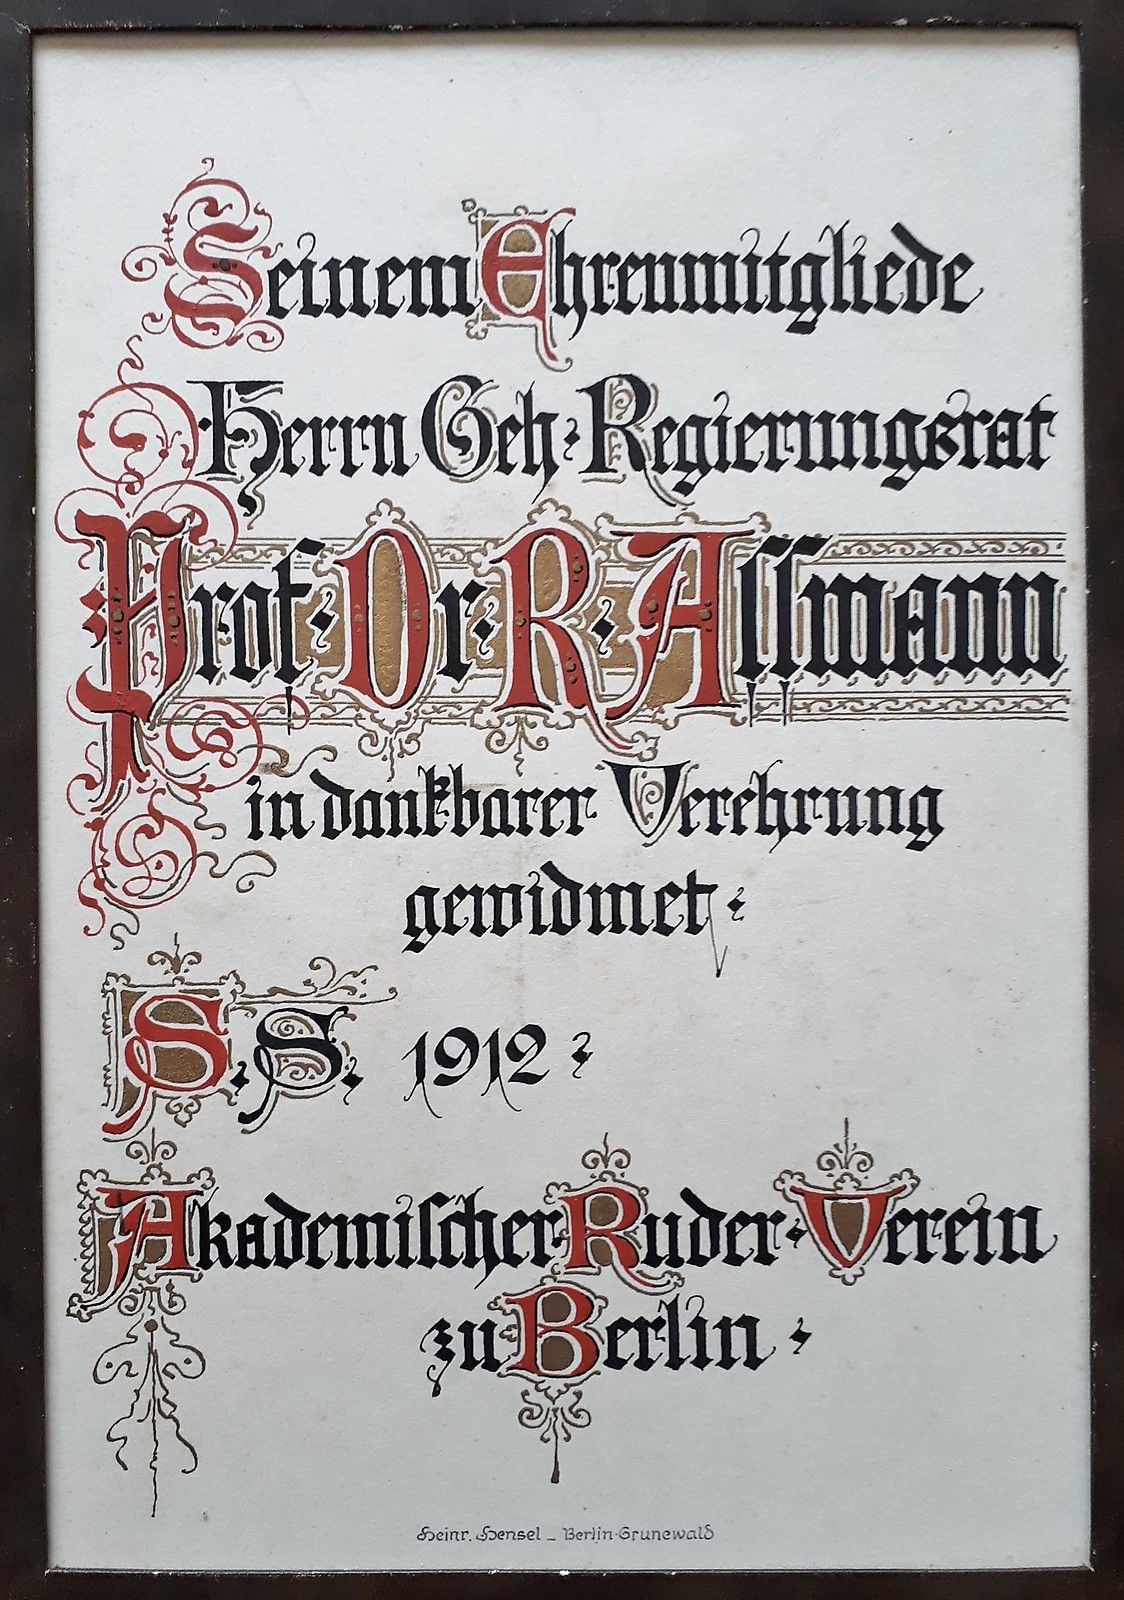 Seinem Ehrenmitgliede
Herrn Geh. Regierungsrat
Prof. Dr. R. Assmann
in dankbarer Verehrung
gewidmet.
S. S. 1912.
Akademischer Ruder-Verein
zu Berlin.
Heinr. Hensel - Berlin-Grunewald